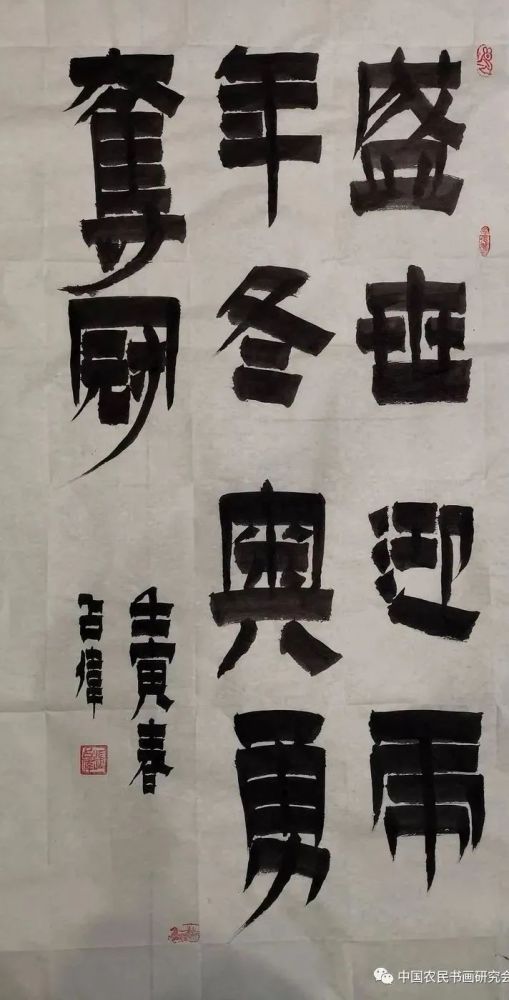 盛世迎虎
年冬奥勇
奪冠
壬寅春
占偉
中国农民书画研究会